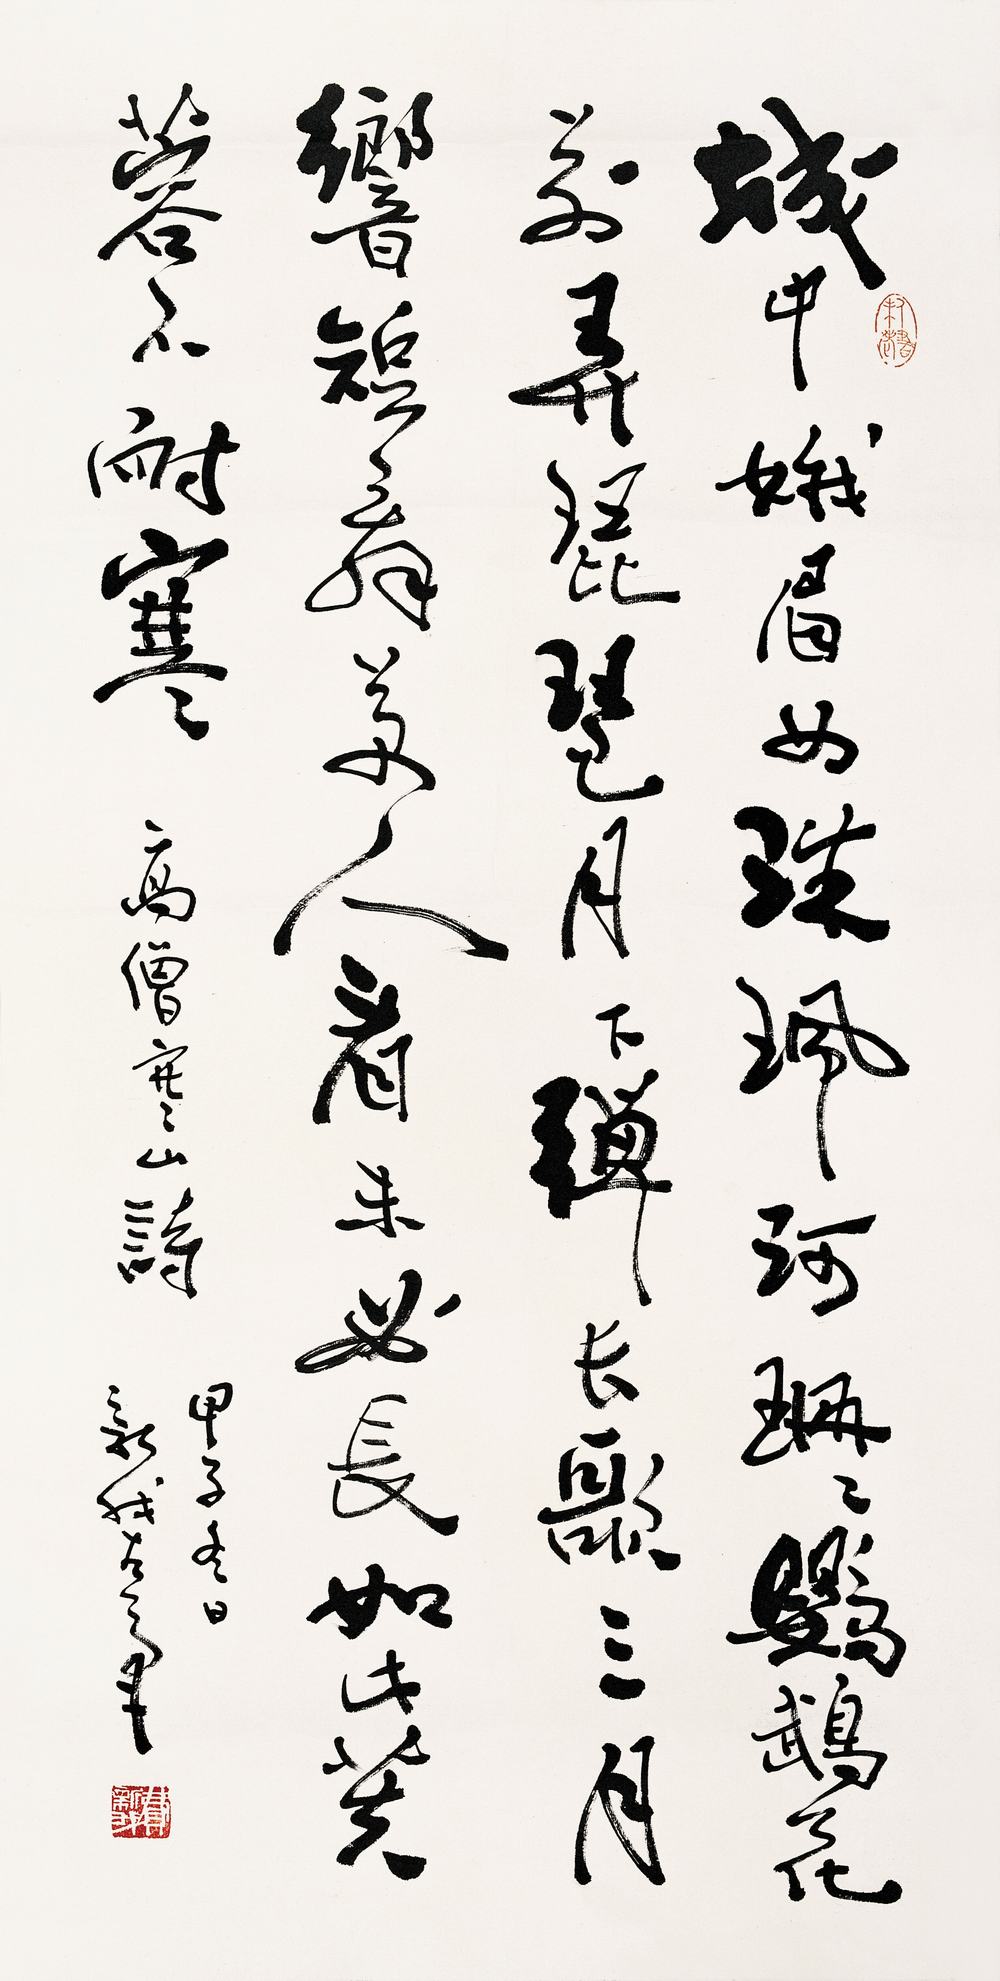 城中娥眉女珠珮珂珊〻鸚鵡花
前弄琵琶月下彈长歌三月
響短舞萬人看未必長如此芙
蓉不耐寒 高僧寒山詩
甲子冬日
新我左筆
費新我